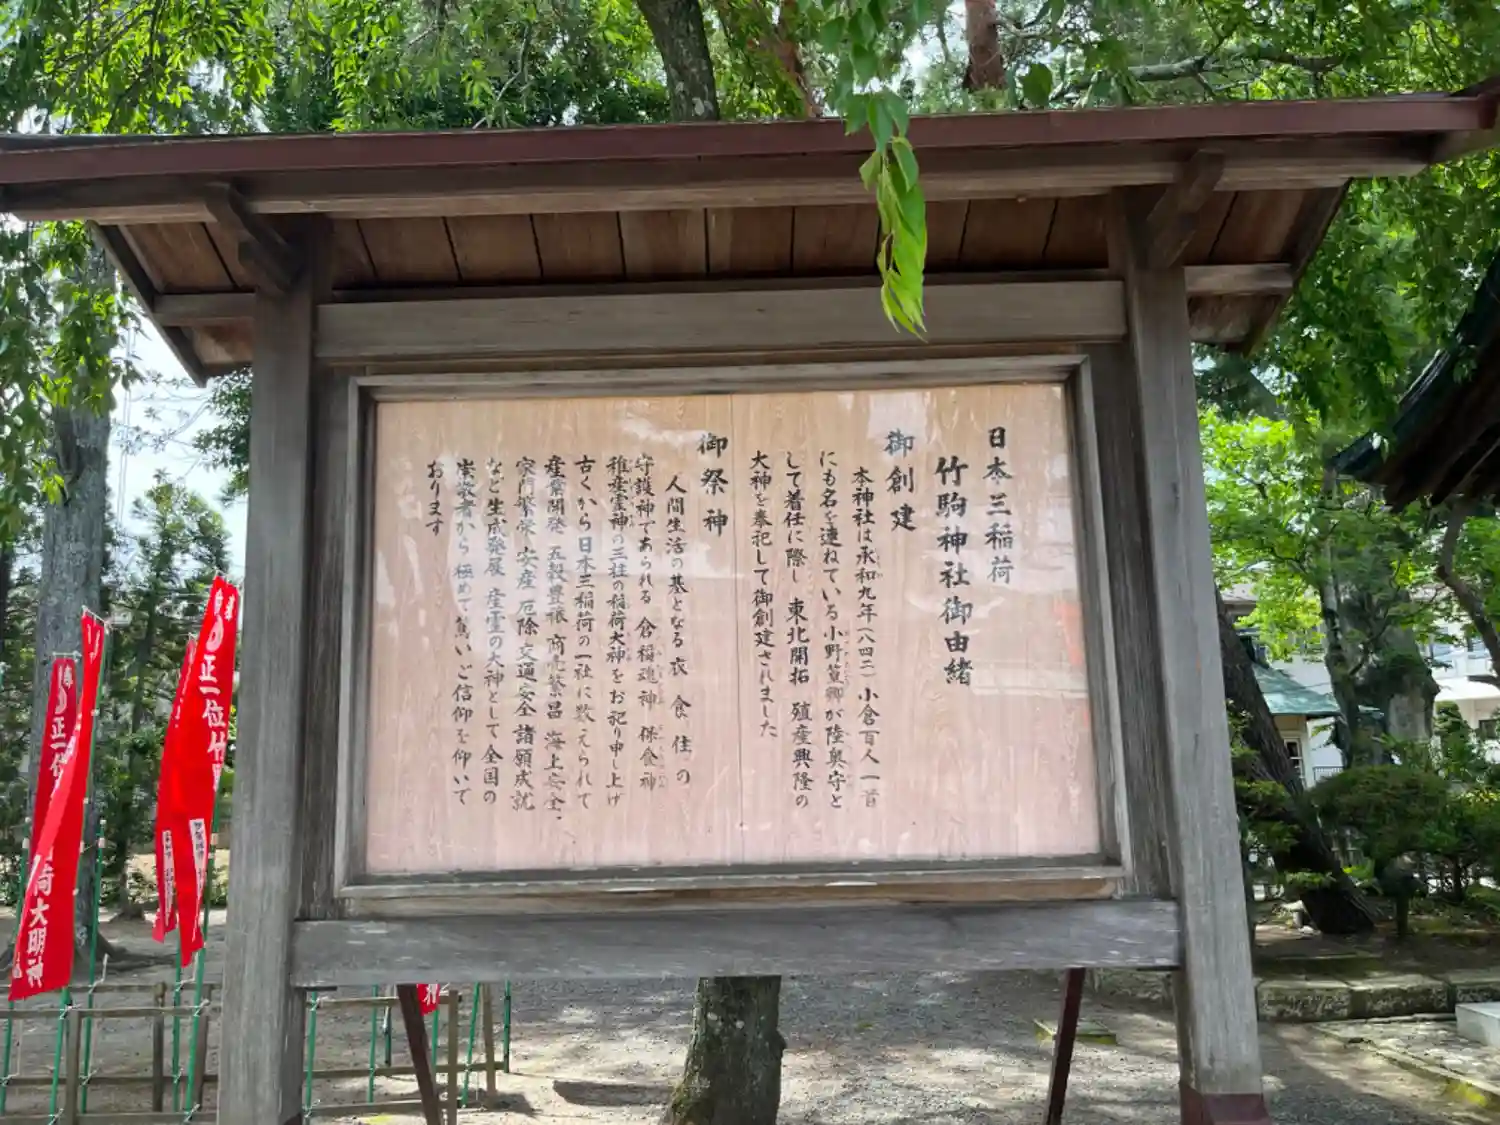 日本三稲荷
竹駒神社御由緒
御創建
本神社は承和九年(八四二)小倉百人一首
にも名を連ねている小野篁卿が陸奥守と
して着任に際し 東北開拓 殖産興隆の
大神を奉祀して御創建されました
御祭神
人間生活の基となる衣 食 住の
守護神であられる 倉稲魂神 保食神
稚産霊神の三柱の稲荷大神をお祀り申し上げ
古くから日本三稲荷の一社に数えられて
産業開発 五穀豊穣 商売繁昌 海上安全
家門繁栄 安産 厄除 交通安全 諸願成就
など生成発展 産霊の大神として全国の
崇敬者から極めて篤いご信仰を仰いで
おります
正一位竹
正一位
荷大明神